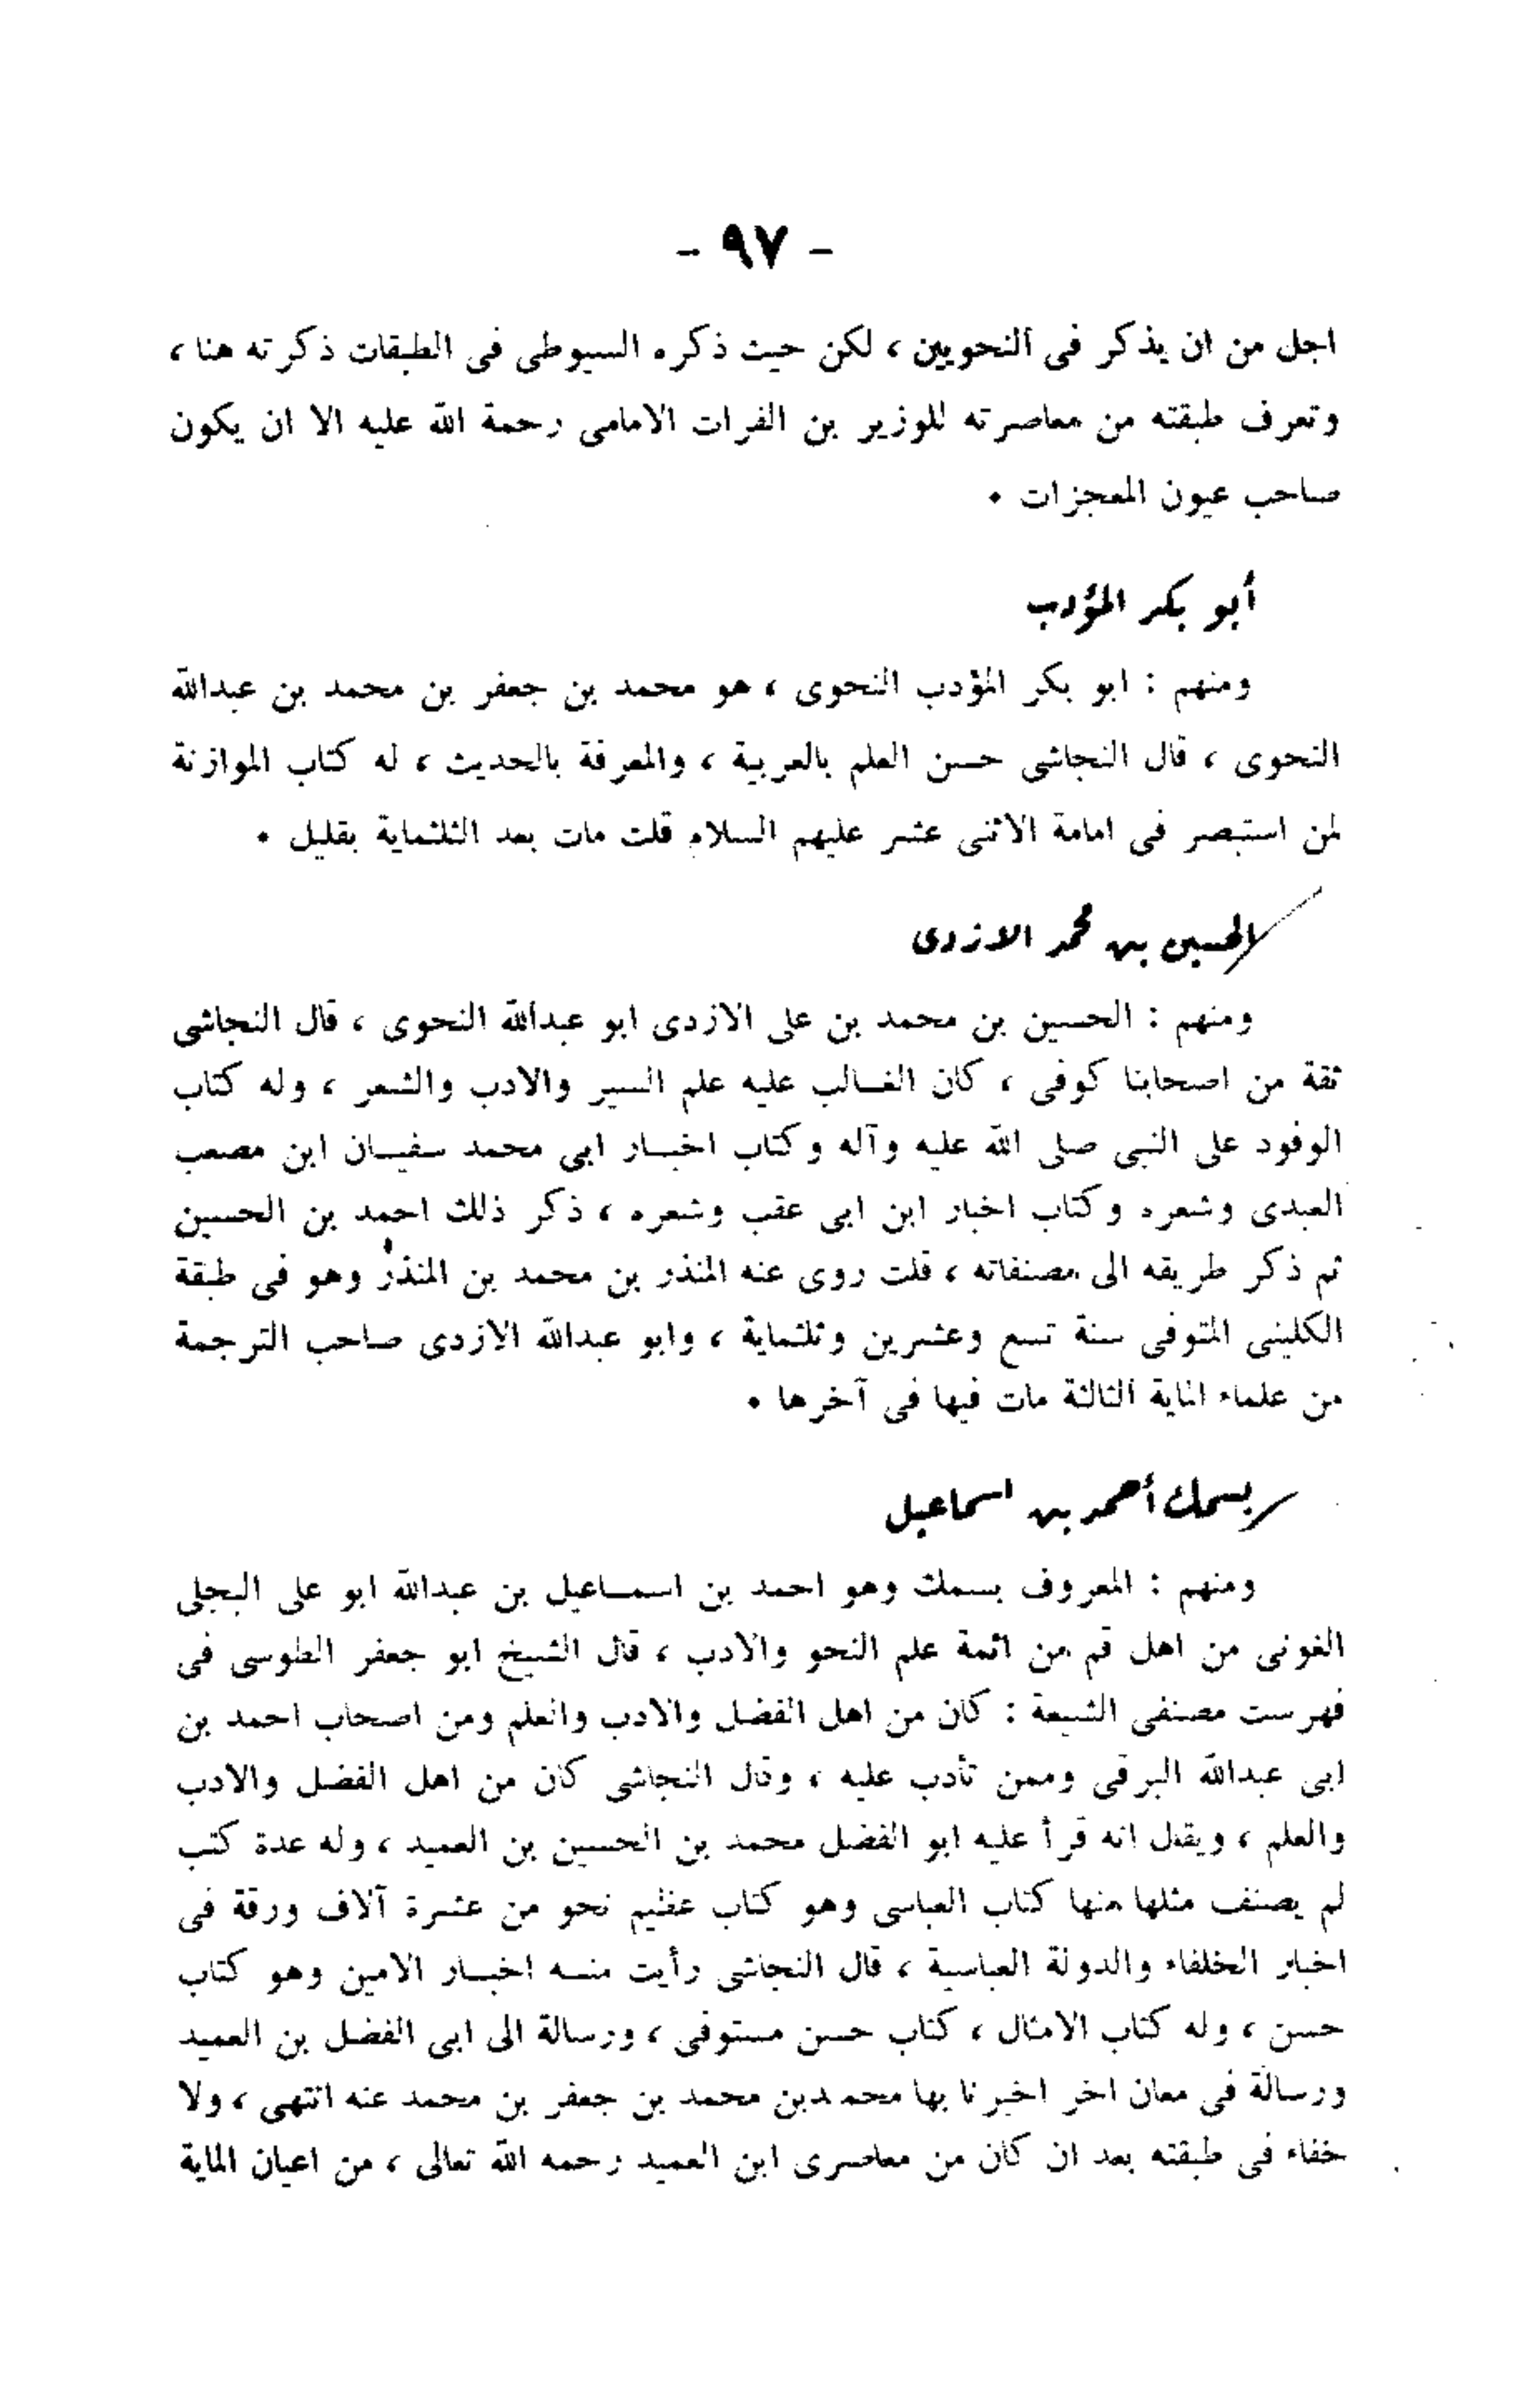 - ٩٧ -
اجل من ان يذكر فى النحويين ، لكن حيث ذكره السيوطى فى الطبقات ذكرته هنا ،
وتعرف طبقته من معاصرته للوزير بن الفرات الامامى رحمة الله عليه الا ان يكون
صاحب عيون المعجزات .
أبو بكر المؤدب
ومنهم : ابو بكر المؤدب النحوى ، هو محمد بن جعفر بن محمد بن عبدالله
النحوى ، قال النجاشى حسن العلم بالعربية ، والمعرفة بالحديث ، له كتاب الموازنة
لمن استبصر فى امامة الاثنى عشر عليهم السلام قلت مات بعد الثلثماية بقليل .
الحسين بن محمد الازدى
ومنهم : الحسين بن محمد بن على الازدى ابو عبدالله النحوى ، قال النجاشى
ثقة من اصحابنا كوفى ، كان الغالب عليه علم السير والادب والشعر ، وله كتاب
الوفود على النبى صلى الله عليه وآله وكتاب اخبار ابى محمد سفيان ابن مصعب
العبدى وشعره وكتاب اخبار ابن ابى عقب وشعره ، ذكر ذلك احمد بن الحسين
ثم ذكر طريقه الى مصنفاته ، قلت روى عنه المنذر بن محمد بن المنذر وهو فى طبقة
الكلينى المتوفى سنة تسع وعشرين وثلثماية ، وابو عبدالله الازدى صاحب الترجمة
من علماء الماية الثالثة مات فيها فى آخرها .
بسمك أحمد بن اسماعيل
ومنهم : المعروف بسمك وهو احمد بن اسماعيل بن عبدالله ابو على البجلى
الغونى من اهل قم من ائمة علم النحو والادب ، قال الشيخ ابو جعفر الطوسى فى
فهرست مصنفى الشيعة : كان من اهل الفضل والادب والعلم ومن اصحاب احمد بن
ابى عبدالله البرقى وممن تأدب عليه ، وقال النجاشى كان من اهل الفضل والادب
والعلم ، ويقال انه قرأ عليه ابو الفضل محمد بن الحسين بن العميد ، وله عدة كتب
لم يصنف مثلها منها كتاب العباسى وهو كتاب عظيم نحو من عشرة آلاف ورقة فى
اخبار الخلفاء والدولة العباسية ، قال النجاشى رأيت منه اخبار الامين وهو كتاب
حسن ، وله كتاب الامثال ، كتاب حسن مستوفى ، ورسالة الى ابى الفضل بن العميد
ورسالة فى معان اخر اخبرنا بها محمدبن محمد بن جعفر بن محمد عنه انتهى ، ولا
خفاء فى طبقته بعد ان كان من معاصرى ابن العميد رحمه الله تعالى ، من اعيان الماية